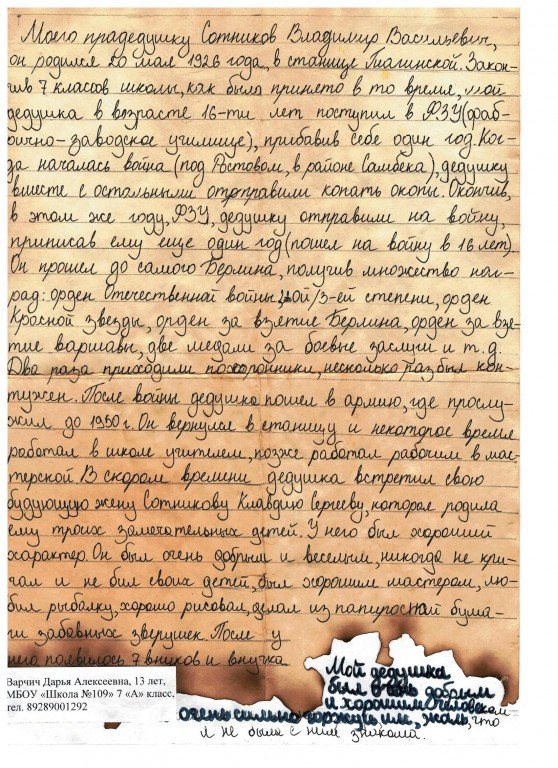 Моего прадедушку Сотников Владимир Васильевич,
он родился 20 мая 1926 года, в станице Тиагинской. Закон-
чив 7 классов школы, как было принято в то время, мой
дедушка в возрасте 16-ти лет поступил в ФЗУ(фаб-
рично-заводское училище), прибавив себе один год. Ког-
да началась война (под Ростовом, в районе Самбека), дедушку
вместе с остальными отправили копать окопы. Окончив,
в этом же году, ФЗУ, дедушку отправили на войну,
приписав ему еще один год (пошел на войну в 16 лет)
Он прошел до самого Берлина, получив множество наг-
рад: орден Отечественной войны, 2ой/3-ей степени, орден
Красной звезды, орден за взятие Берлина, орден за взя-
тие варшавы, две медали за боевые заслуги и т.д.
Два раза приходили похоронники, несколько раз был кон-
тужен. После войны дедушка пошел в армию, где прослу-
жил до 1950 г. Он вернулся в станицу и некоторое время
работал в школе учителем, позже работал рабочим в мас-
терской В скором времени дедушка встретил свою
будующую жену Сотникову Клавдию Сергееву, которая родила
ему троих замечательных детей. У него был хороший
характер. Он был очень добрым и веселым, никогда не кри-
чал и не бил своих детей, был хорошим мастером, лю-
бил рыбалку, хорошо рисовал, делал из папиросной бума-
ги забавных зверушек. После у
него появилось 7 внуков и внучка
Варчич Дарья Алексеевна, 13 лет,
МБОУ «Школа №109» 7 «А» класс,
тел. 89289001292
Мой дедушка
был очень добрым
и хорошим человеком
очень сильно горжусь им, жаль, что
я не была с ним знакома.